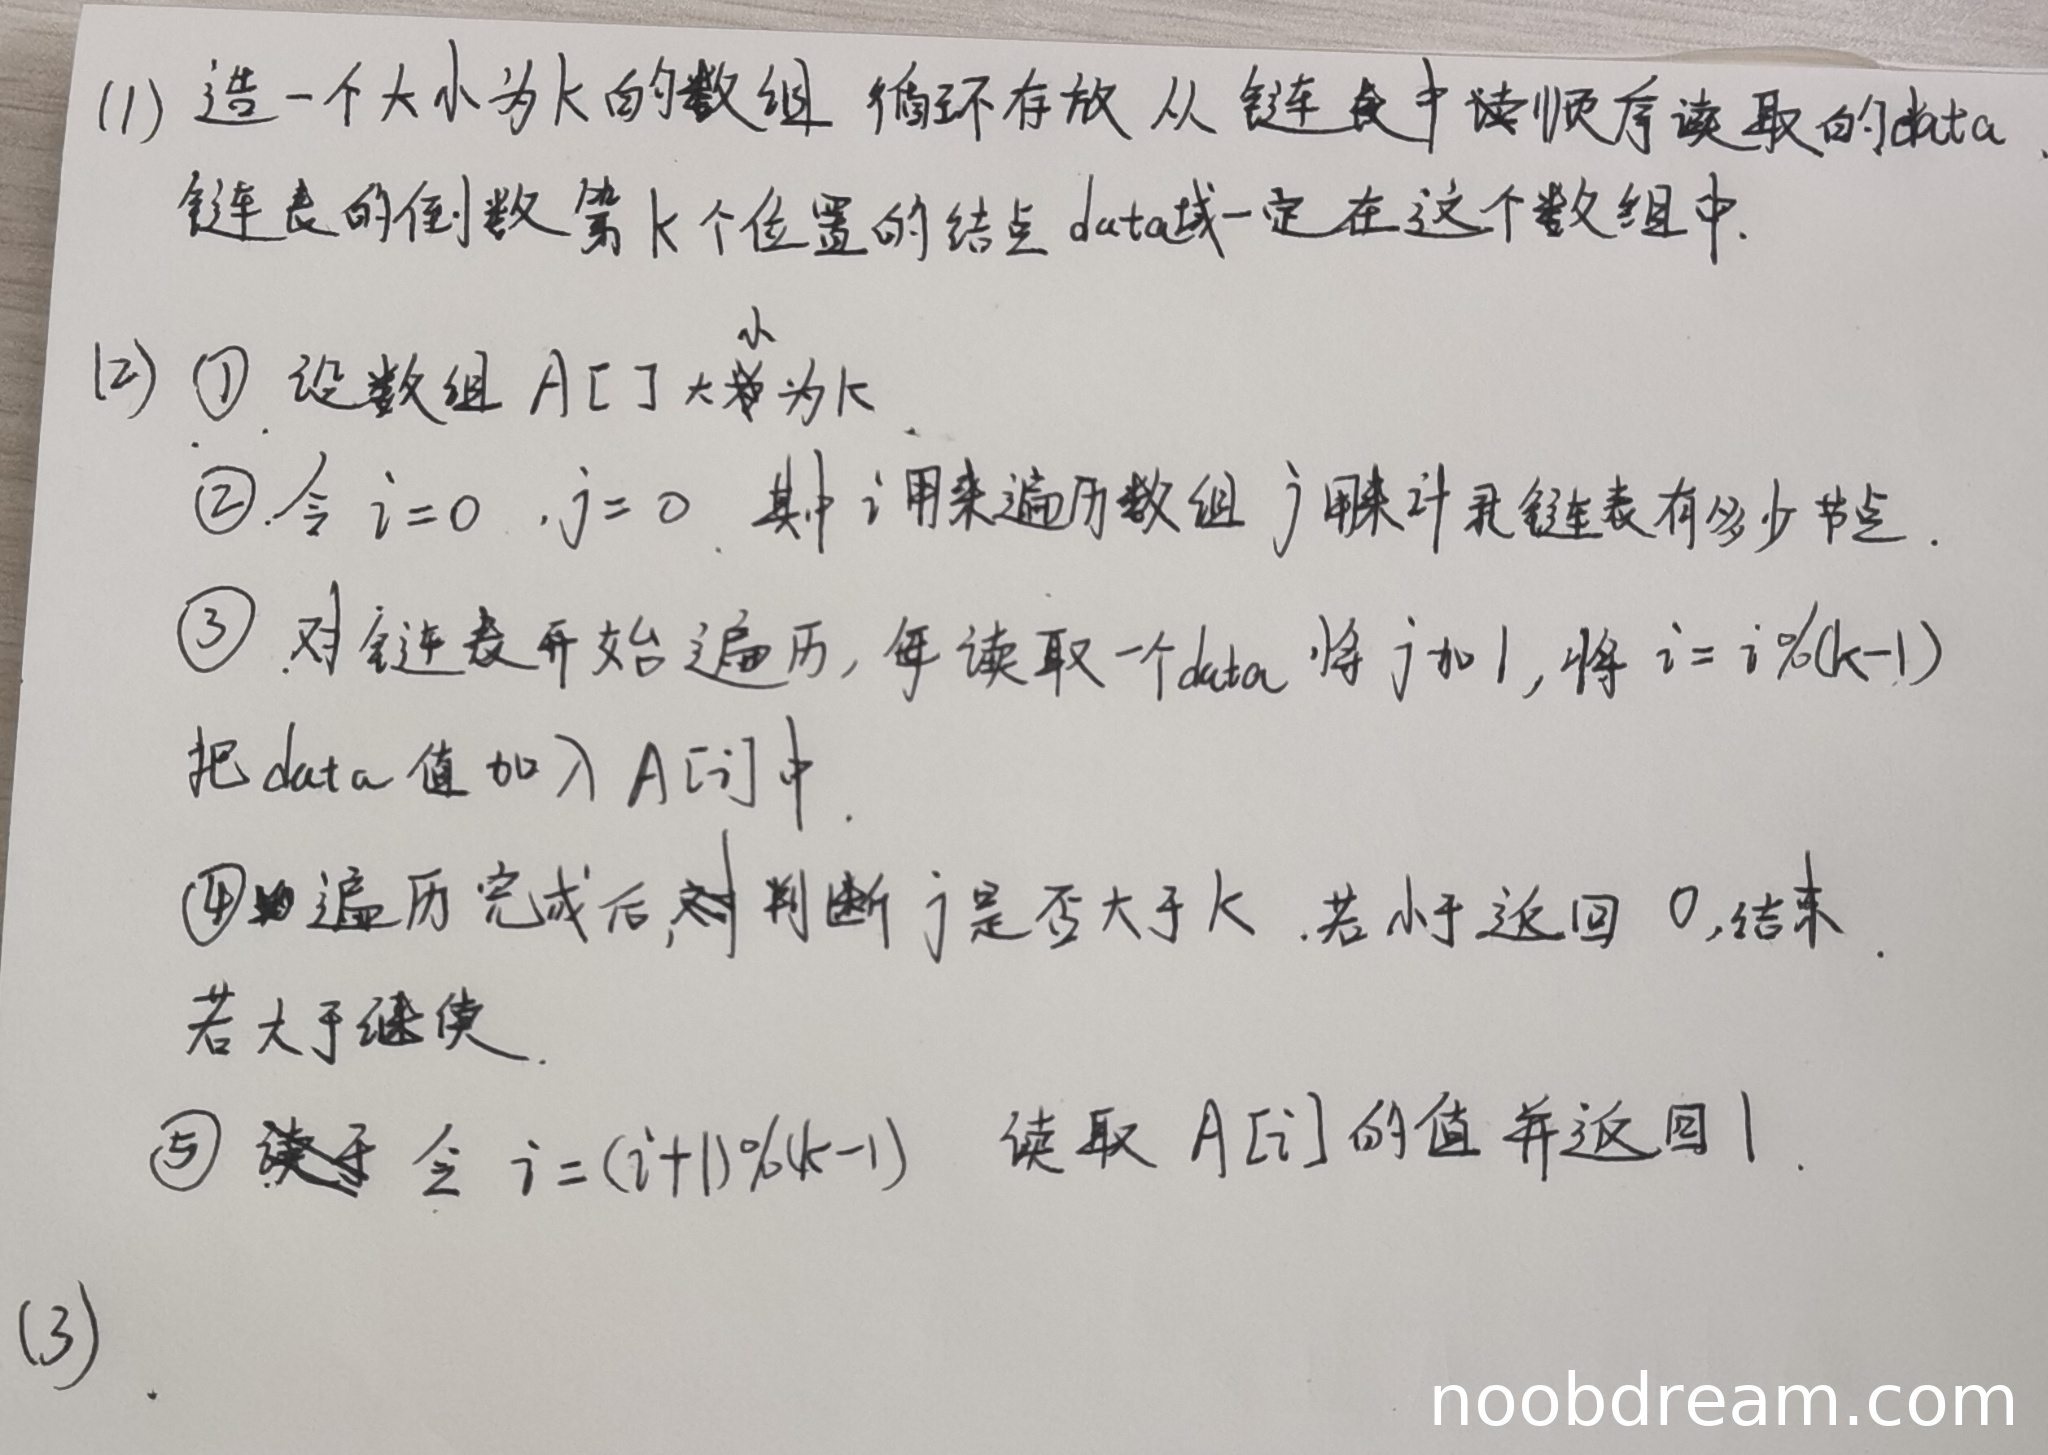 (1) 造一个大小为k的数组 循环存放从链表中读顺序读取的data.
链表的倒数第k个位置的结点data域一定在这个数组中.
(2) ① 设数组 A[] 大小为k.
② 令 i=0 . j=0 . 其中 i用来遍历数组 j用来计录链表有多少节点.
③ 对链表开始遍历, 每读取一个data 将 j加1, 将 i=i%(k-1)
把data值加入A[i]中.
④ 遍历完成后, 判断j是否大于k . 若小于返回 0, 结束.
若大于继续.
⑤ 令 i=(i+1)%(k-1) 读取 A[i]的值并返回1.
(3)
noobdream.com